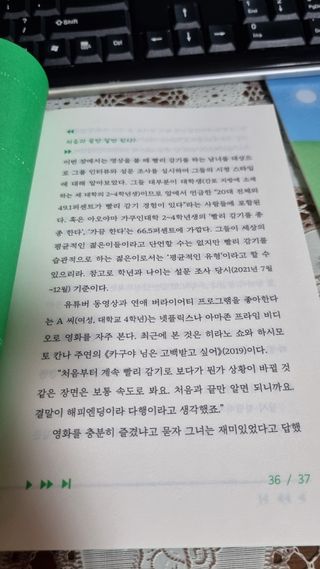 처음과 끝만 알면 된다?
이번 장에서는 영상을 볼 때 빨리 감기를 하는 남녀를 대상으
로 그룹 인터뷰와 설문 조사를 실시하여 그들의 시청 스타일
에 대해 알아보았다. 그들 대부분이 대학생(간토 지방에 소재
하는 세 대학의 2~4학년생)이므로 앞에서 언급한 "20대 전체의
49.1퍼센트가 빨리 감기 경험이 있다"라는 사람들에 포함된
다. 혹은 아오야마 가쿠인대학 2~4학년생의 '빨리 감기를 종
종 한다', '가끔 한다'는 66.5퍼센트에 가깝다. 그들이 세상의
평균적인 젊은이들이라고 단언할 수는 없지만 빨리 감기를
습관적으로 하는 젊은이로서는 '평균적인 유형'이라고 할 수
있으리라. 참고로 학년과 나이는 설문 조사 당시(2021년 7월
~12월) 기준이다.
유튜버 동영상과 연애 버라이어티 프로그램을 좋아한다
는 A 씨(여성, 대학교 4학년)는 넷플릭스나 아마존 프라임 비디
오로 영화를 자주 본다. 최근에 본 것은 히라노 쇼와 하시모
토 칸나 주연의 《가구야 님은 고백받고 싶어》(2019)이다.
"처음부터 계속 빨리 감기로 보다가 뭔가 상황이 바뀔 것
같은 장면은 보통 속도로 봐요. 처음과 끝만 알면 되니까요.
결말이 해피엔딩이라 다행이라고 생각했죠."
영화를 충분히 즐겼냐고 묻자 그녀는 재미있었다고 답했
36 / 37
Shift
Ctrl
Alt